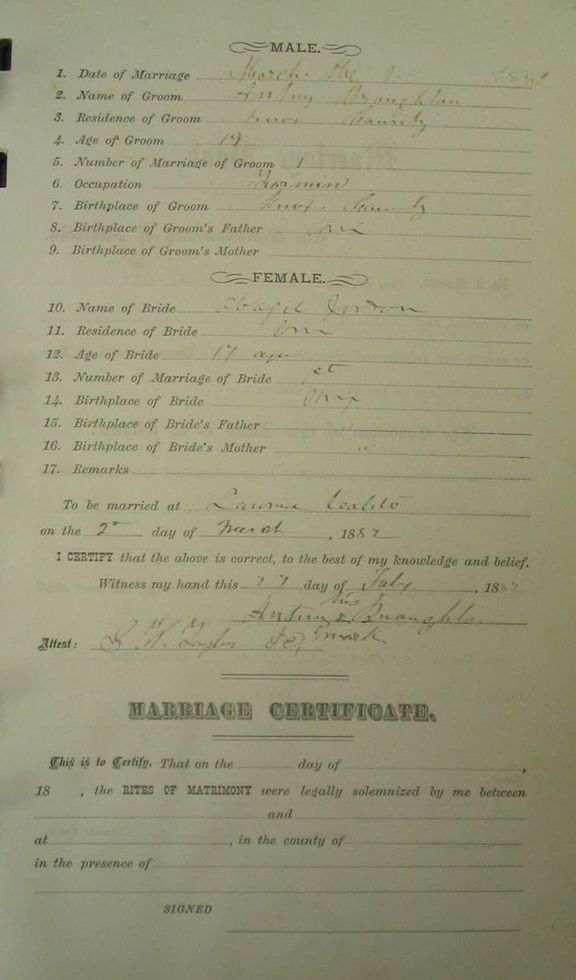 MALE.
1. Date of Marriage March the
2. Name of Groom Broughton
3. Residence of Groom Knox County
4. Age of Groom 19
5. Number of Marriage of Groom 1
6. Occupation Farmin
7. Birthplace of Groom Knox County
8. Birthplace of Groom's Father
9. Birthplace of Groom's Mother
FEMALE.
10. Name of Bride
11. Residence of Bride
12. Age of Bride 17
13. Number of Marriage of Bride 1st
14. Birthplace of Bride
15. Birthplace of Bride's Father
16. Birthplace of Bride's Mother "
17. Remarks
To be married at
on the 2 day of March, 1882
I CERTIFY that the above is correct, to the best of my knowledge and belief.
Witness my hand this day of Feby, 188
his
x Broughton
mark
Attest:
MARRIAGE CERTIFICATE.
This is to Certify, That on the day of ,
18 , the RITES OF MATRIMONY were legally solemnized by me between
and
at , in the county of
in the presence of
SIGNED